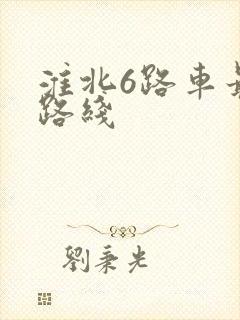 淮北6路車
路綫
劉秉光